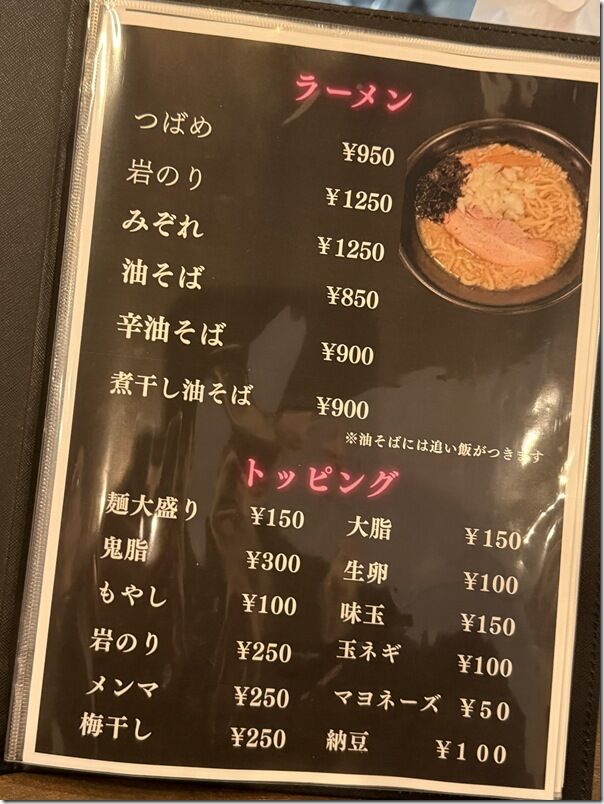 ラーメン
つばめ ¥950
岩のり ¥1250
みぞれ ¥1250
油そば ¥850
辛油そば ¥900
煮干し油そば ¥900
※油そばには追い飯がつきます
トッピング
麺大盛り ¥150 大脂 ¥150
鬼脂 ¥300 生卵 ¥100
もやし ¥100 味玉 ¥150
岩のり ¥250 玉ネギ ¥100
メンマ ¥250 マヨネーズ ¥50
梅干し ¥250 納豆 ¥100